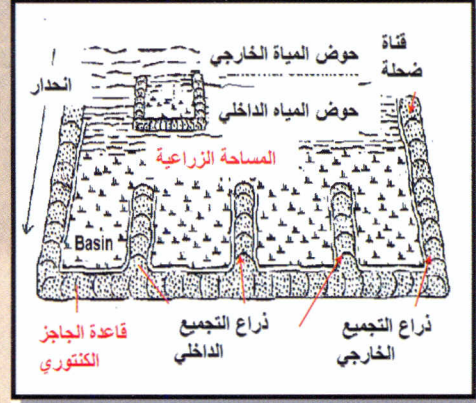 حوض المياة الخارجي
قناة
ضحلة
انحدار
حوض المياه الداخلي
المساحة الزراعية
Basin
قاعدة الجاجز
الكنتوري
ذراع التجميع
الداخلي
ذراع التجميع
الخارجي